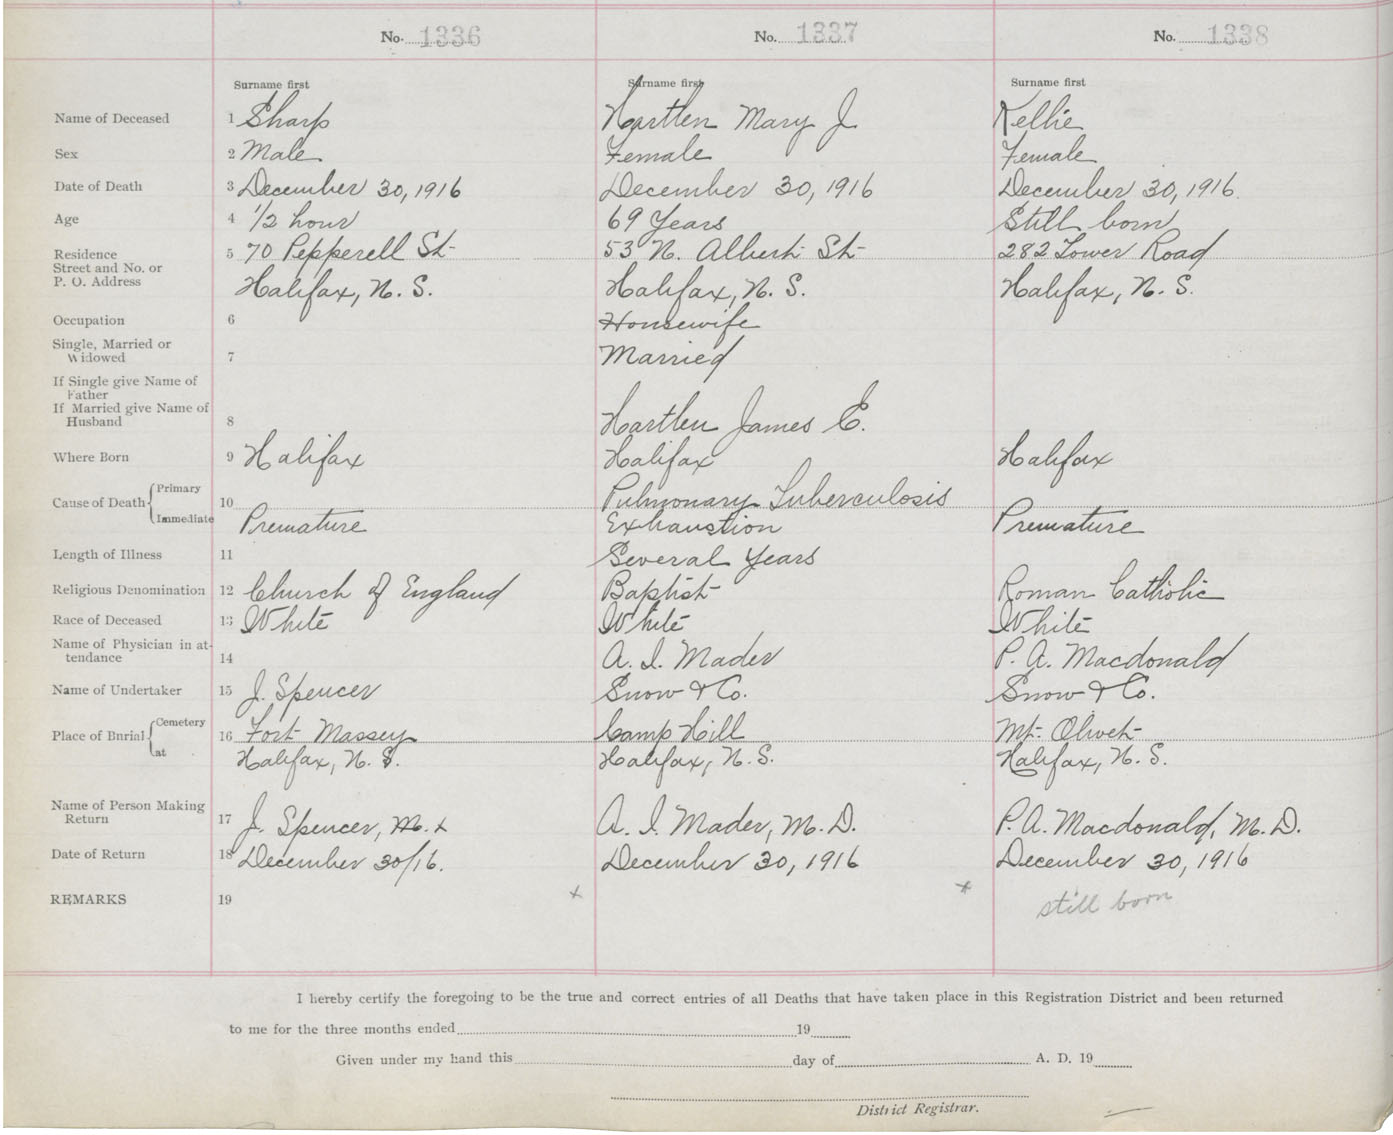 No. 1336 No. 1337 No. 1338
Surname first Surname first Surname first
Name of Deceased 1 Sharp Hartlen Mary J Kellie
Sex 2 Male Female Female
Date of Death 3 December 30, 1916 December 30, 1916 December 30, 1916.
Age 4 1/2 hour 69 Years Still born
Residence 5 70 Pepperell St 53 N. Albert St 282 Lower Road
Street and No. or
P. O. Address Halifax, N. S. Halifax, N. S. Halifax, N. S.
Occupation 6 Housewife
Single, Married or
Widowed 7 Married
If Single give Name of
Father
If Married give Name of
Husband 8 Hartlen James E.
Where Born 9 Halifax Halifax Halifax
Cause of Death Primary 10 Pulmonary Tuberculosis
Immediate Premature Exhaustion Premature
Length of Illness 11 Several Years
Religious Denomination 12 Church of England Baptist Roman Catholic
Race of Deceased 13 White White White
Name of Physician in at-
tendance 14 A. I. Mader P. A. Macdonald
Name of Undertaker 15 J. Spencer Snow & Co. Snow & Co.
Place of Burial Cemetery 16 Fort Massey Camp Hill Mt. Olivet
at Halifax, N. S. Halifax, N. S. Halifax, N. S.
Name of Person Making
Return 17 J. Spencer, A. I. Mader, M. D. P. A. Macdonald, M. D.
Date of Return 18 December 30/16. December 30, 1916 December 30, 1916
REMARKS 19 x x still born
I hereby certify the foregoing to be the true and correct entries of all Deaths that have taken place in this Registration District and been returned
to me for the three months ended 19
Given under my hand this day of A. D. 19
District Registrar.